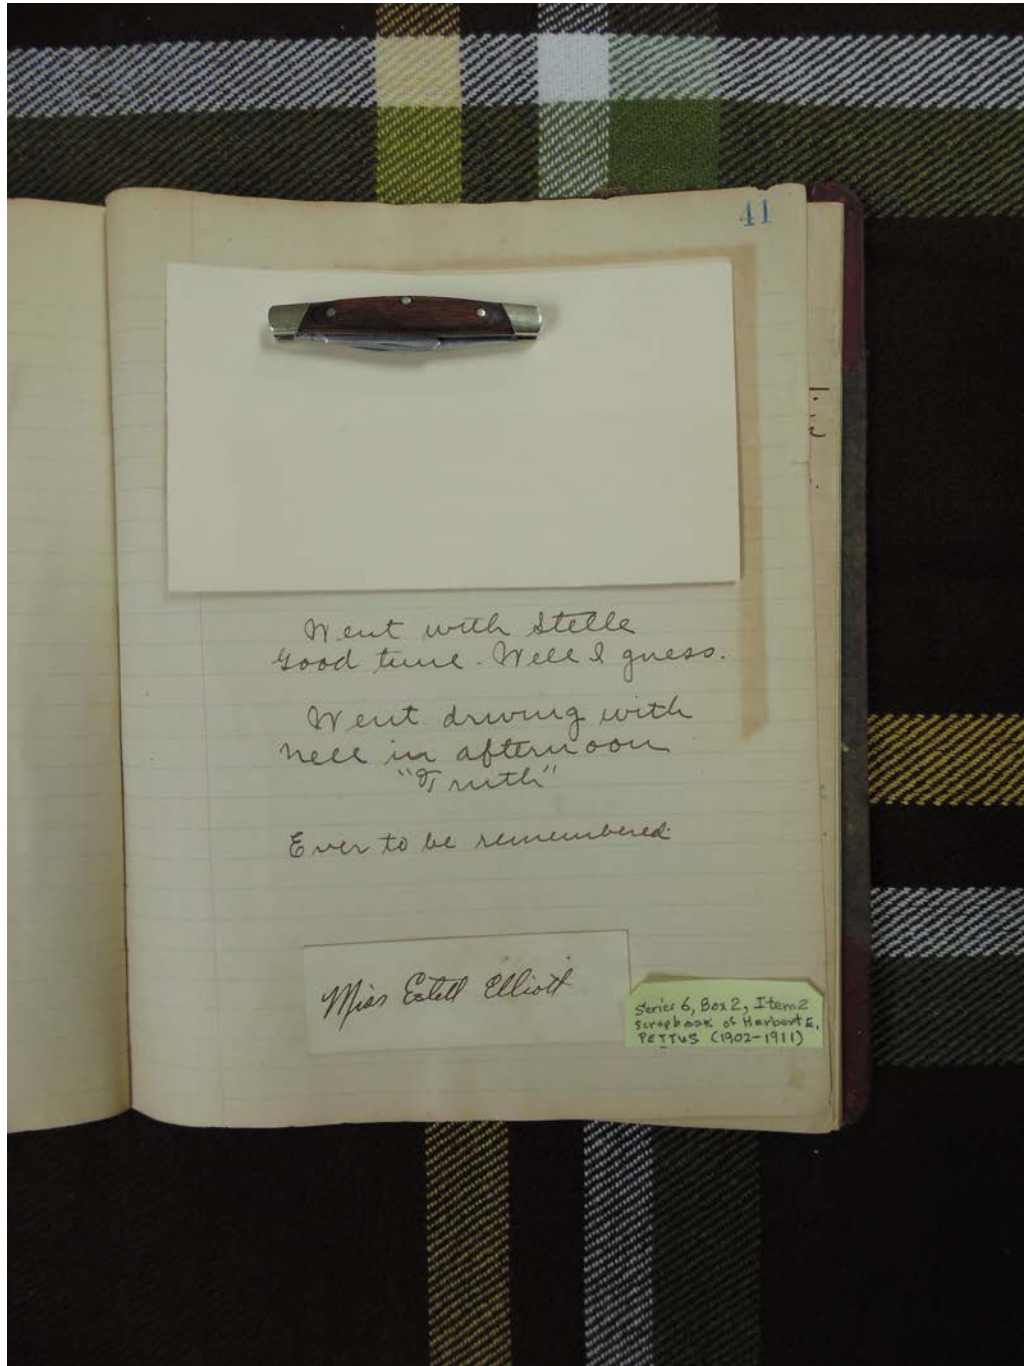 41
Went with Stelle
Good time. Well I guess.
Went driving with
Nell in afternoon
"Truth"
Ever to be remembered
Miss Estell Elliott
Series 6, Box 2, Item 2
scrapbook of Harbert E.
PETTUS (1902-1911)